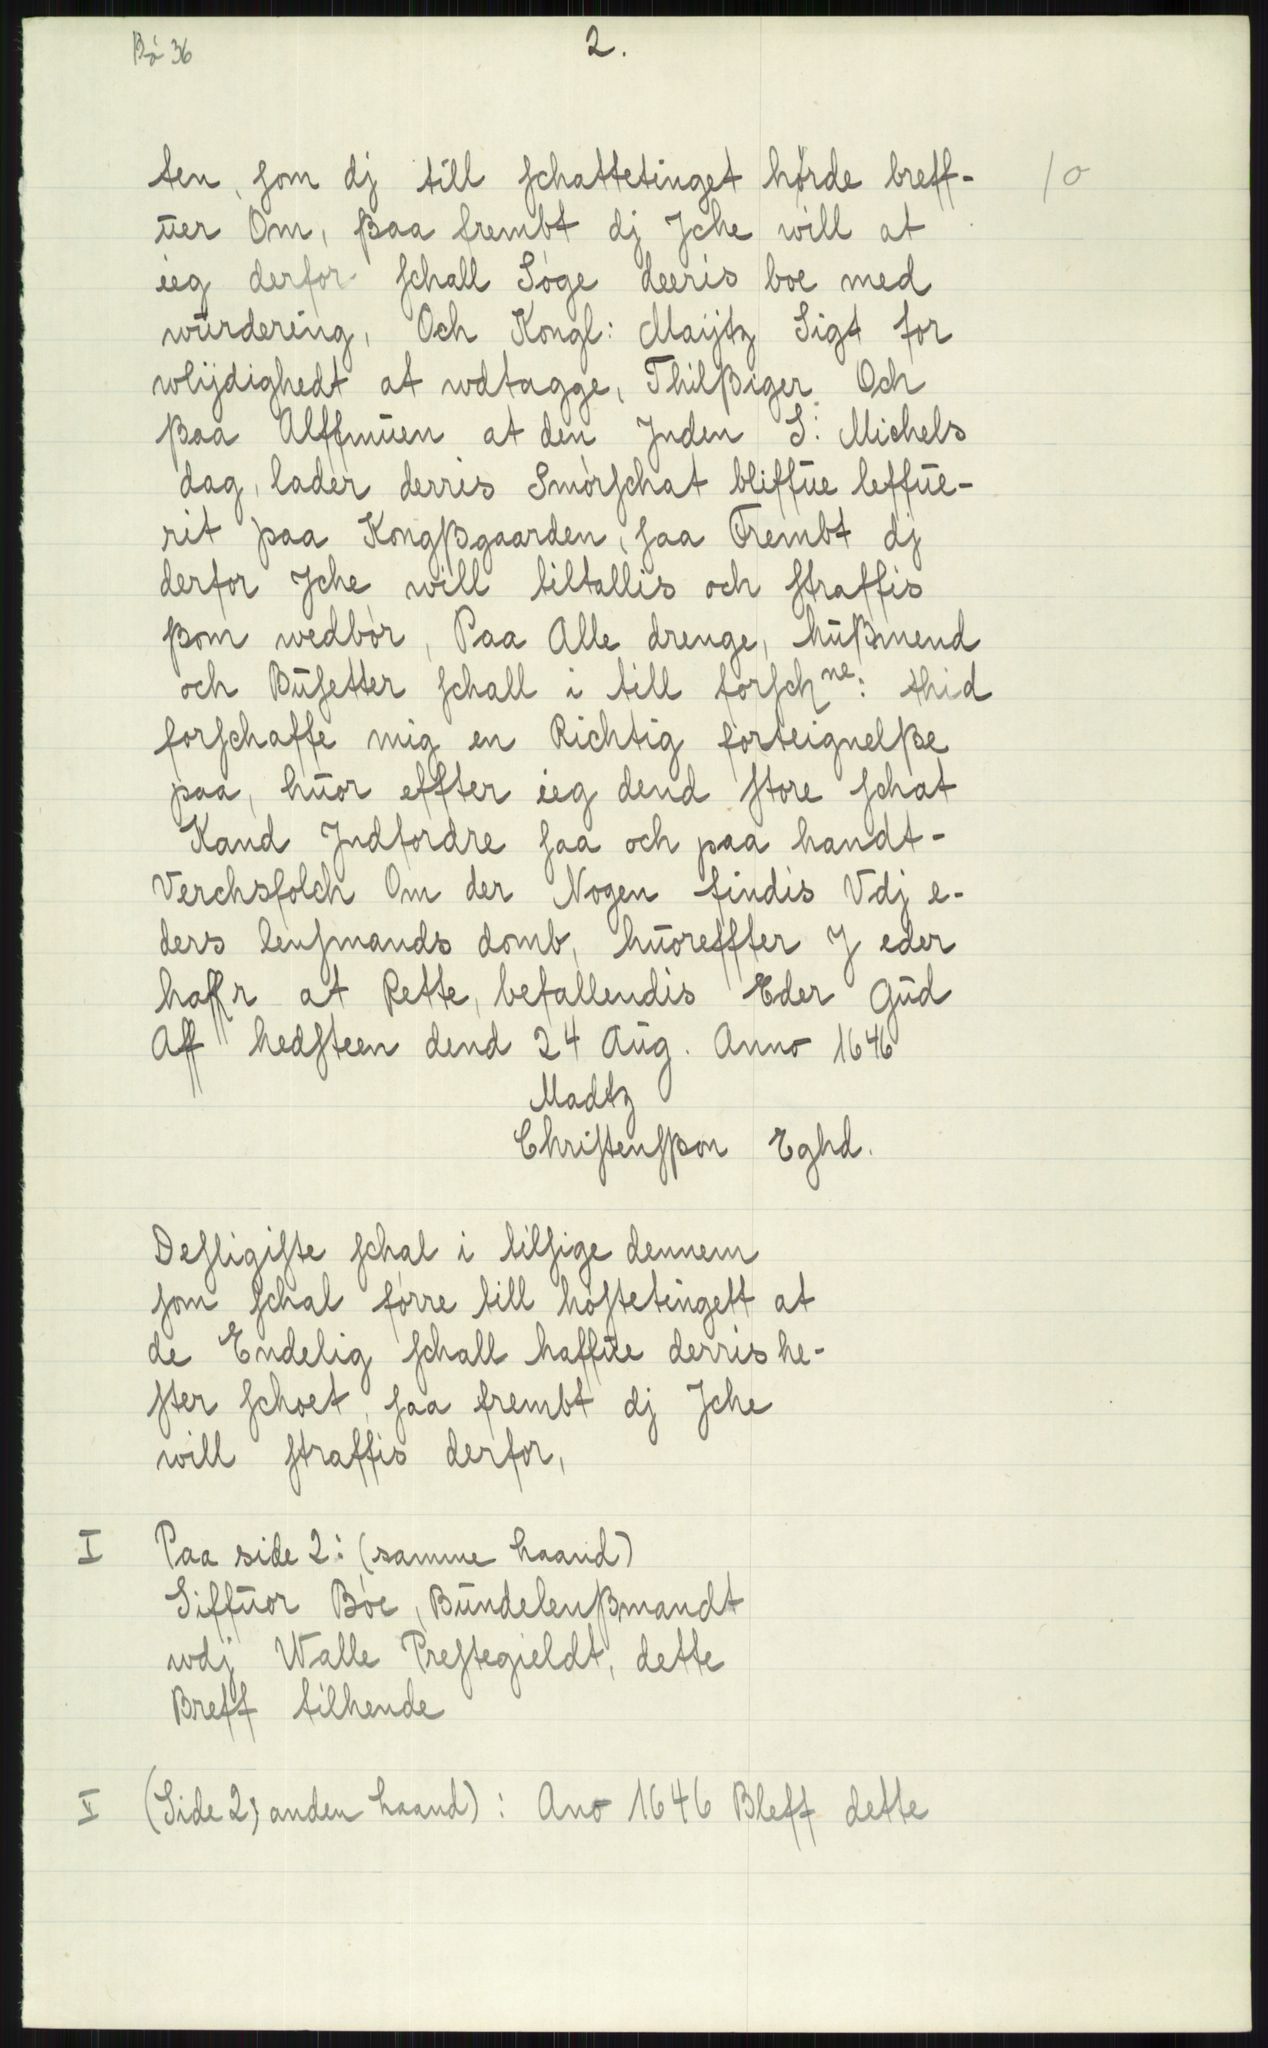 Bø 36
2.
ten, som dj till schattetinget hørde breff- / o
ŭer Om, ßaa frembt dj Jche will at
ieg derfor schall Søge deeris boe med
wŭrdering, Och Kongl: Maijtz Sigt for
wlijdighedt at wdtagge, Thilßiger Och
ßaa Alffmŭen at den Jnden S: Michels
dag, lader derris Smørschat bliffŭe leffŭe-
rit paa Kongßgaarden, saa Frembt dj
derfor Jche will tiltallis och straffis
ßom wedbør, Paa Alle drenge, hŭßmend
och Bŭsetter schall i till forschne: thid
forschaffe mig en Richtig forteignelße
paa, hŭor effter ieg dend store schat
Kand Jndfordre saa och paa handt-
Verchsfolch Om der Nogen findis Vdj e-
ders lensmands domb, hŭoreffter J eder
haffr at Rette, befallendis Eder Gŭd
Aff hedsteen dend 24 Aŭg. Anno 1646
Madtz
Christensßon Eghd.
Desligiste schal i tilsige dennem
som schal førre till høstetingett at
de Endelig schall haffŭe derris he-
ster schoet, saa frembt dj Jche
will straffis derfor,
I Paa side 2: (samme haand)
Siffŭor Bøe, Bŭndelenßmandt
wdj Walle Prestegieldt, dette
Breff tilhende
II (Side 2; anden haand): Ano 1646 Bleff dette